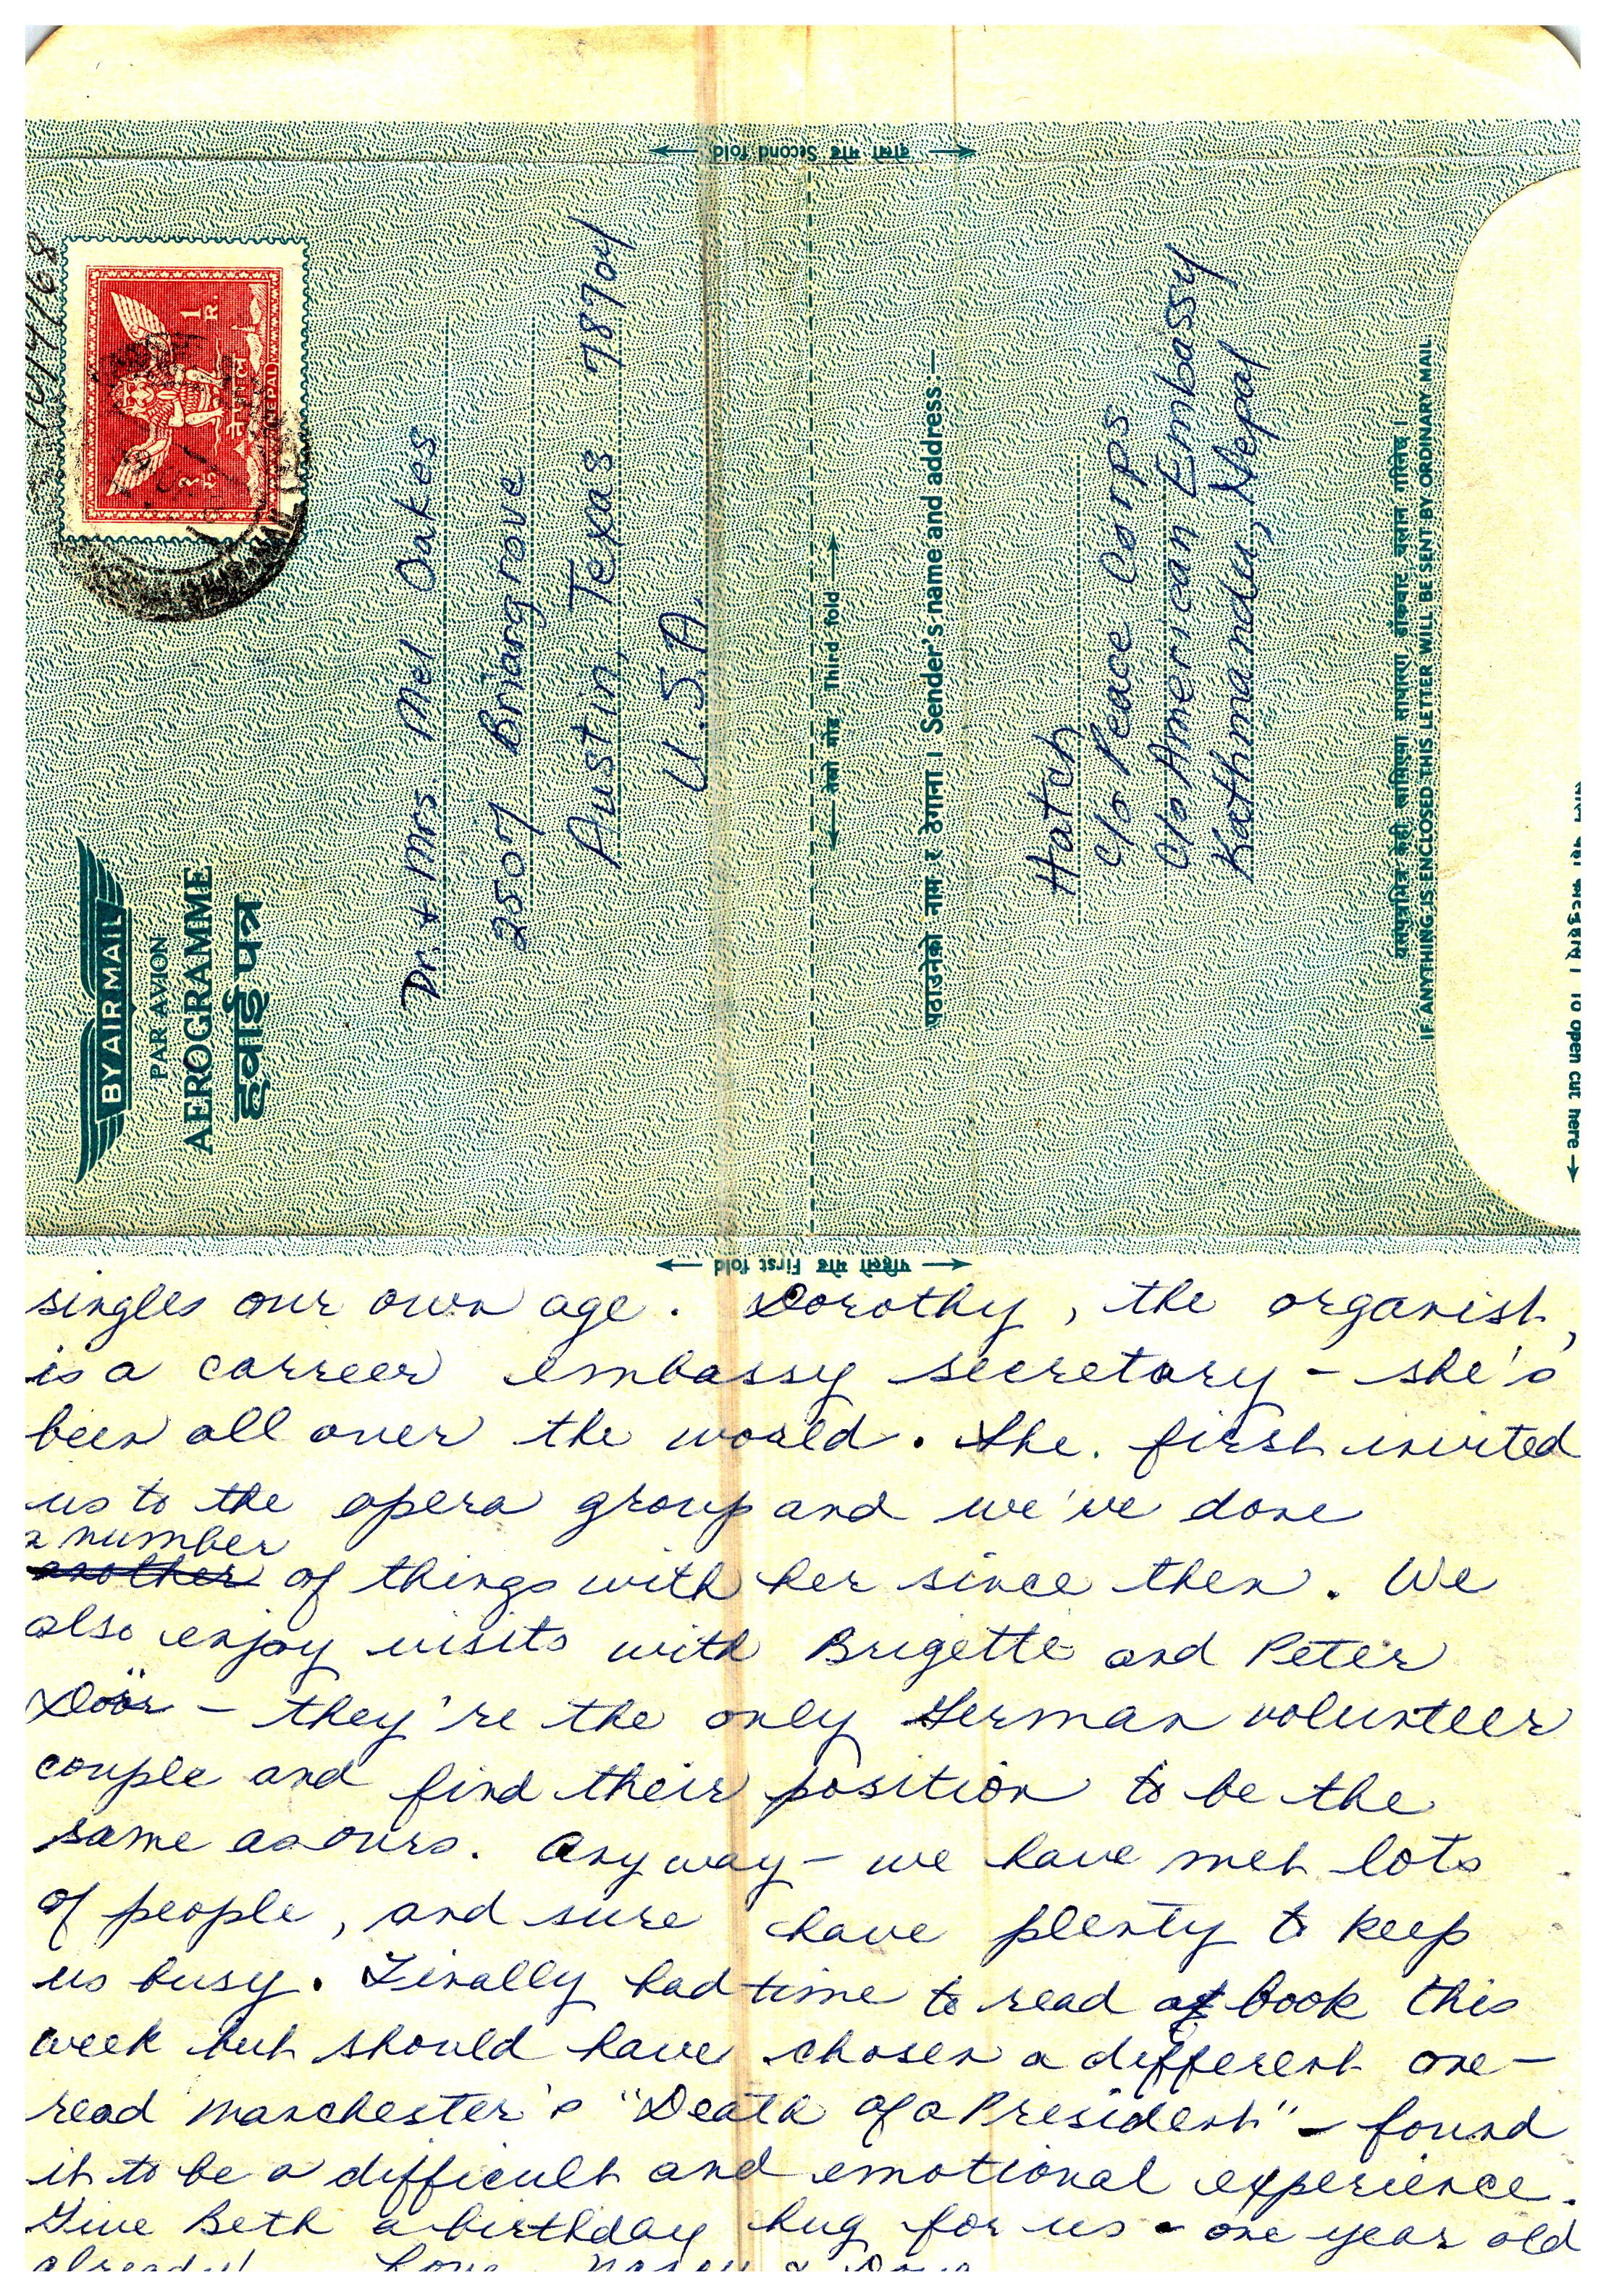 10/4/68
१ रु.
1 R.
नेपाल
NEPAL
BY AIR MAIL
PAR AVION
AEROGRAMME
हवाई पत्र
Dr. & Mrs Mel Oakes
2507 Briargrove
Austin, Texas 78704
U.S.A.
दोस्रो मोड Second fold
तेस्रो मोड Third fold
पठाउनेको नाम र ठेगाना । Sender's name and address:—
Hatch
c/o Peace Corps
c/o American Embassy
Kathmandu, Nepal
यसपत्रभित्र केही राखिएमा साधारण डाँकबाट चलान गरिनेछ ।
IF ANYTHING IS ENCLOSED THIS LETTER WILL BE SENT BY ORDINARY MAIL.
To open cut here
पहिलो मोड First fold
singles our own age. Dorothy, the organist,
is a carreer embassy secretary - she's
been all over the world. She first invited
us to the opera group and we've done
a number
another of things with her since then. We
also enjoy visits with Brigette and Peter
Döör - they're the only German volunteer
couple and find their position to be the
same as ours. Anyway - we have met lots
of people, and sure have plenty to keep
us busy. Finally had time to read a book this
week but should have chosen a different one -
read Manchester's "Death of a President" - found
it to be a difficult and emotional experience.
Give Beth a birthday hug for us - one year old
already! Love, Nancy & Doug